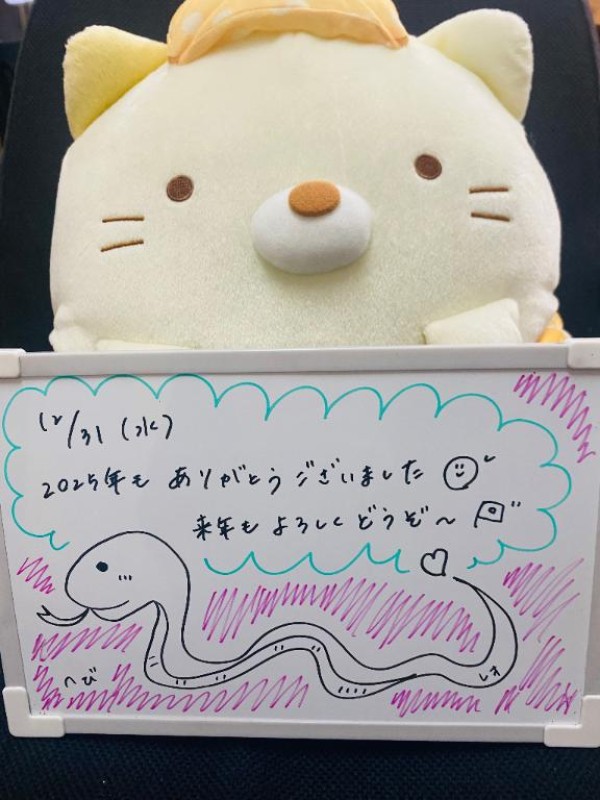 12/31 (水)
2025年も ありがとうございました
来年も よろしく どうぞ～
へび